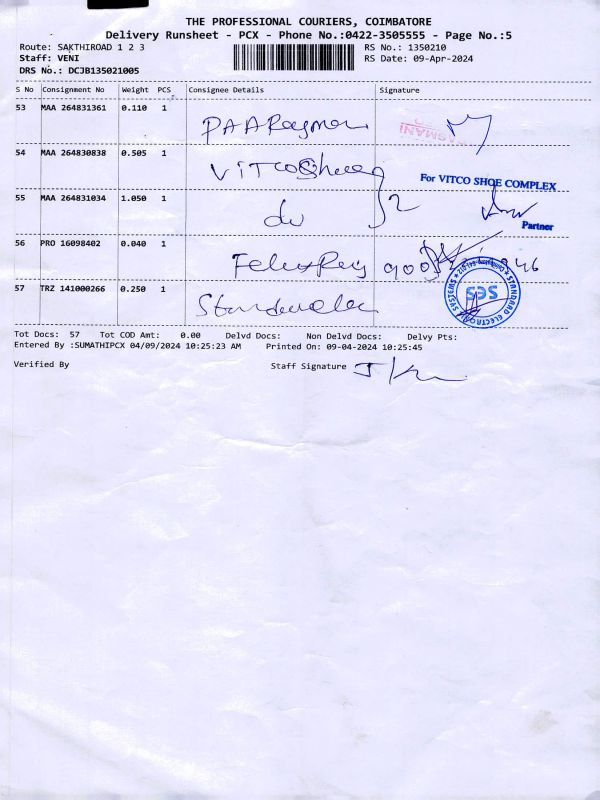 THE PROFESSIONAL COURIERS, COIMBATORE
Delivery Runsheet - PCX - Phone No.:0422-3505555 - Page No.:5
Route: SAKTHIROAD 1 2 3 RS No.: 1350210
Staff: VENI RS Date: 09-Apr-2024
DRS No.: DCJB135021005
S No Consignment No Weight PCS Consignee Details Signature
53 MAA 264831361 0.110 1
54 MAA 264830838 0.505 1
VITCO Shoe
For VITCO SHOE COMPLEX
55 MAA 264831034 1.050 1
do 2
Partner
56 PRO 16098402 0.040 1
57 TRZ 141000266 0.250 1
SES
STANDARD ELECTRONIC SYSTEMS
Tot Docs: 57 Tot COD Amt: 0.00 Delvd Docs: Non Delvd Docs: Delvy Pts:
Entered By :SUMATHIPCX 04/09/2024 10:25:23 AM Printed On: 09-04-2024 10:25:45
Verified By Staff Signature